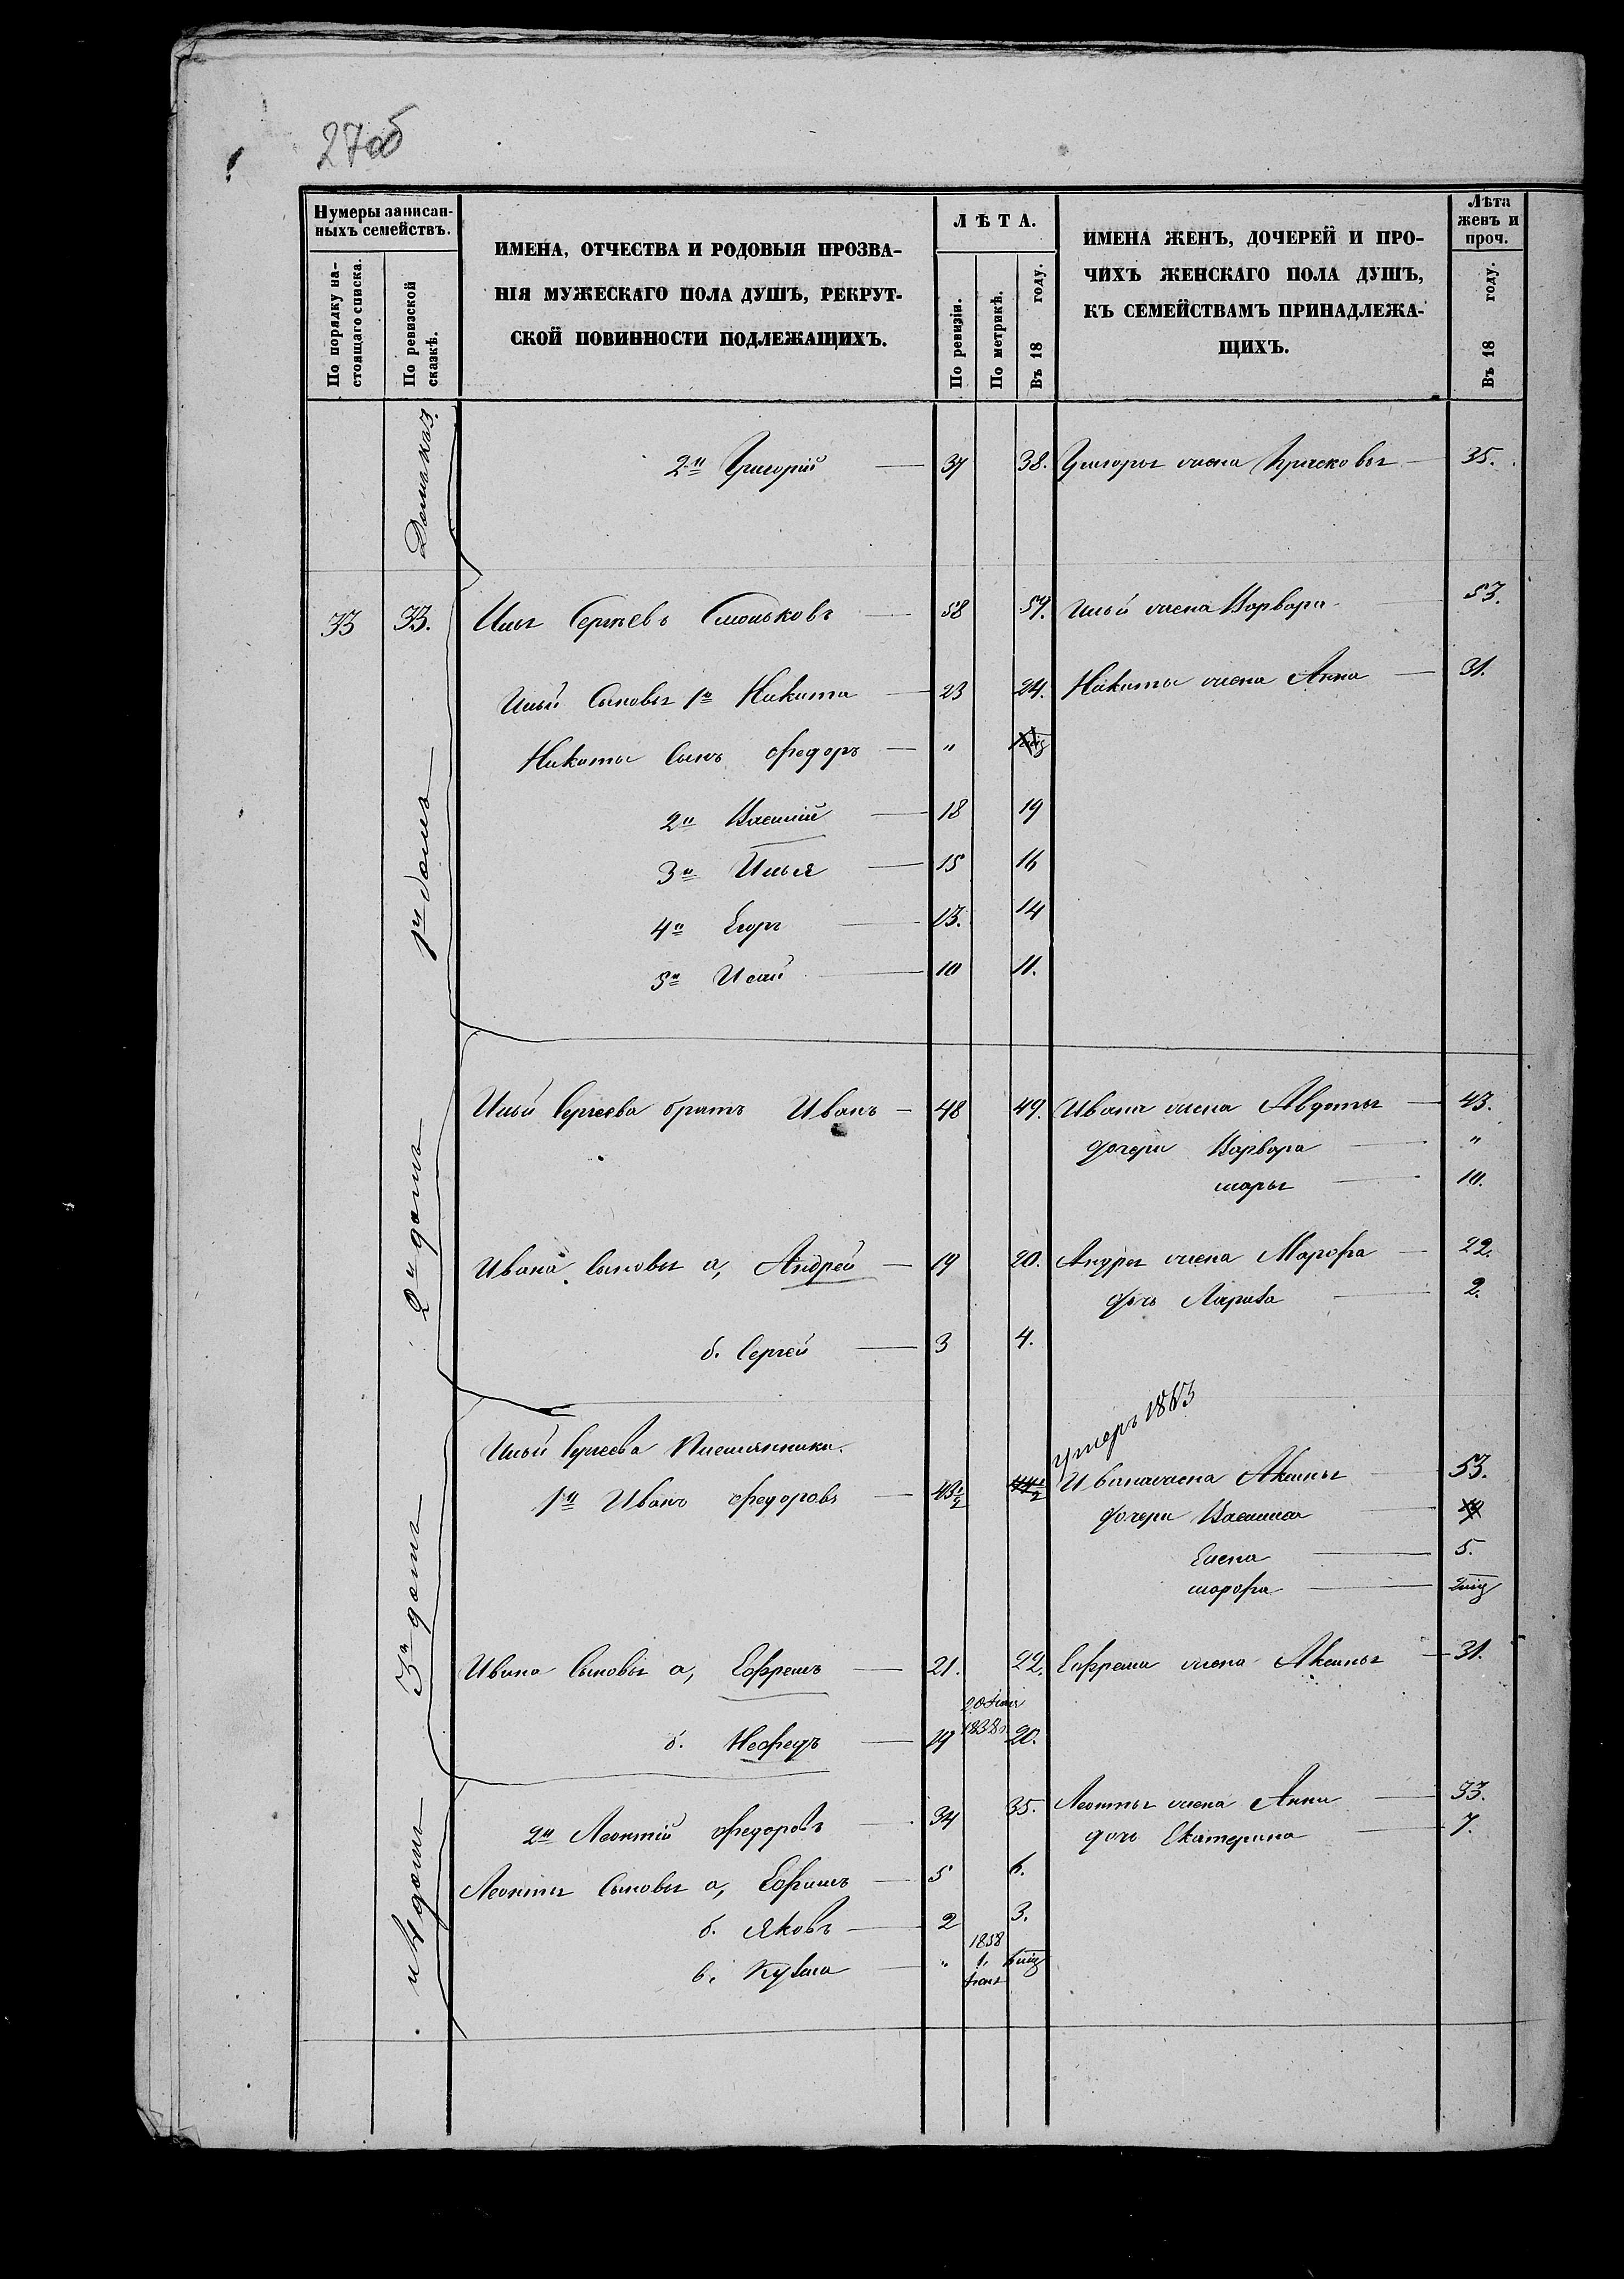 27об
Нумеры записан-
ныхъ семействъ.
По порядку на-
стоящаго списка.
По ревизской
сказкѣ.
ИМЕНА, ОТЧЕСТВА И РОДОВЫЯ ПРОЗВА-
НІЯ МУЖЕСКАГО ПОЛА ДУШЪ, РЕКРУТ-
СКОЙ ПОВИННОСТИ ПОДЛЕЖАЩИХЪ.
ЛѢТА.
По ревизіи.
По метрикѣ.
Въ 18 году.
ИМЕНА ЖЕНЪ, ДОЧЕРЕЙ И ПРО-
ЧИХЪ ЖЕНСКАГО ПОЛА ДУШЪ,
КЪ СЕМЕЙСТВАМЪ ПРИНАДЛЕЖА-
ЩИХЪ.
Лѣта
женъ и
проч.
Въ 18 году.
2й Григорій 37 38. Григорья жена 35.
33 33. Илья Сергѣевъ 58 59. Ильи жена Варвара 53.
1й домъ
Ильи Сыновья 1й Никита 23 24. Никиты жена Анна 31.
Никиты Сынъ Федоръ "
2й Василій 18 19
3й Илья 15 16
4й Егоръ 13. 14
5й 10 11.
2й домъ
Ильи Сергеева братъ Иванъ 48 49. Ивана жена Авдотья 43.
дочери Варвара "
марья 10.
Ивана Сыновья а, Андрей 19 20. Андрея жена Марфа 22.
дочь 2.
б. Сергей 3 4.
3й домъ
умеръ 1863
Ильи Сергеева Племянники.
1й Иванъ Федоровъ 43½ 44½ Ивана жена Аксинья 53.
дочери
Елена 5.
марфа 2 мц
Ивана Сыновья а, Ефремъ 21. 22. Ефрема жена Аксинья 31.
б. Нефедъ 19 1838 20.
и 4 домъ
2й Леонтій Федоровъ 34 35. Леонтья жена Анна 33.
дочь Екатерина 7.
Леонтья Сыновья а, Ефимъ 5 6.
б. Яковъ 2 3.
в. Кузма " 1858 1. 6 мц